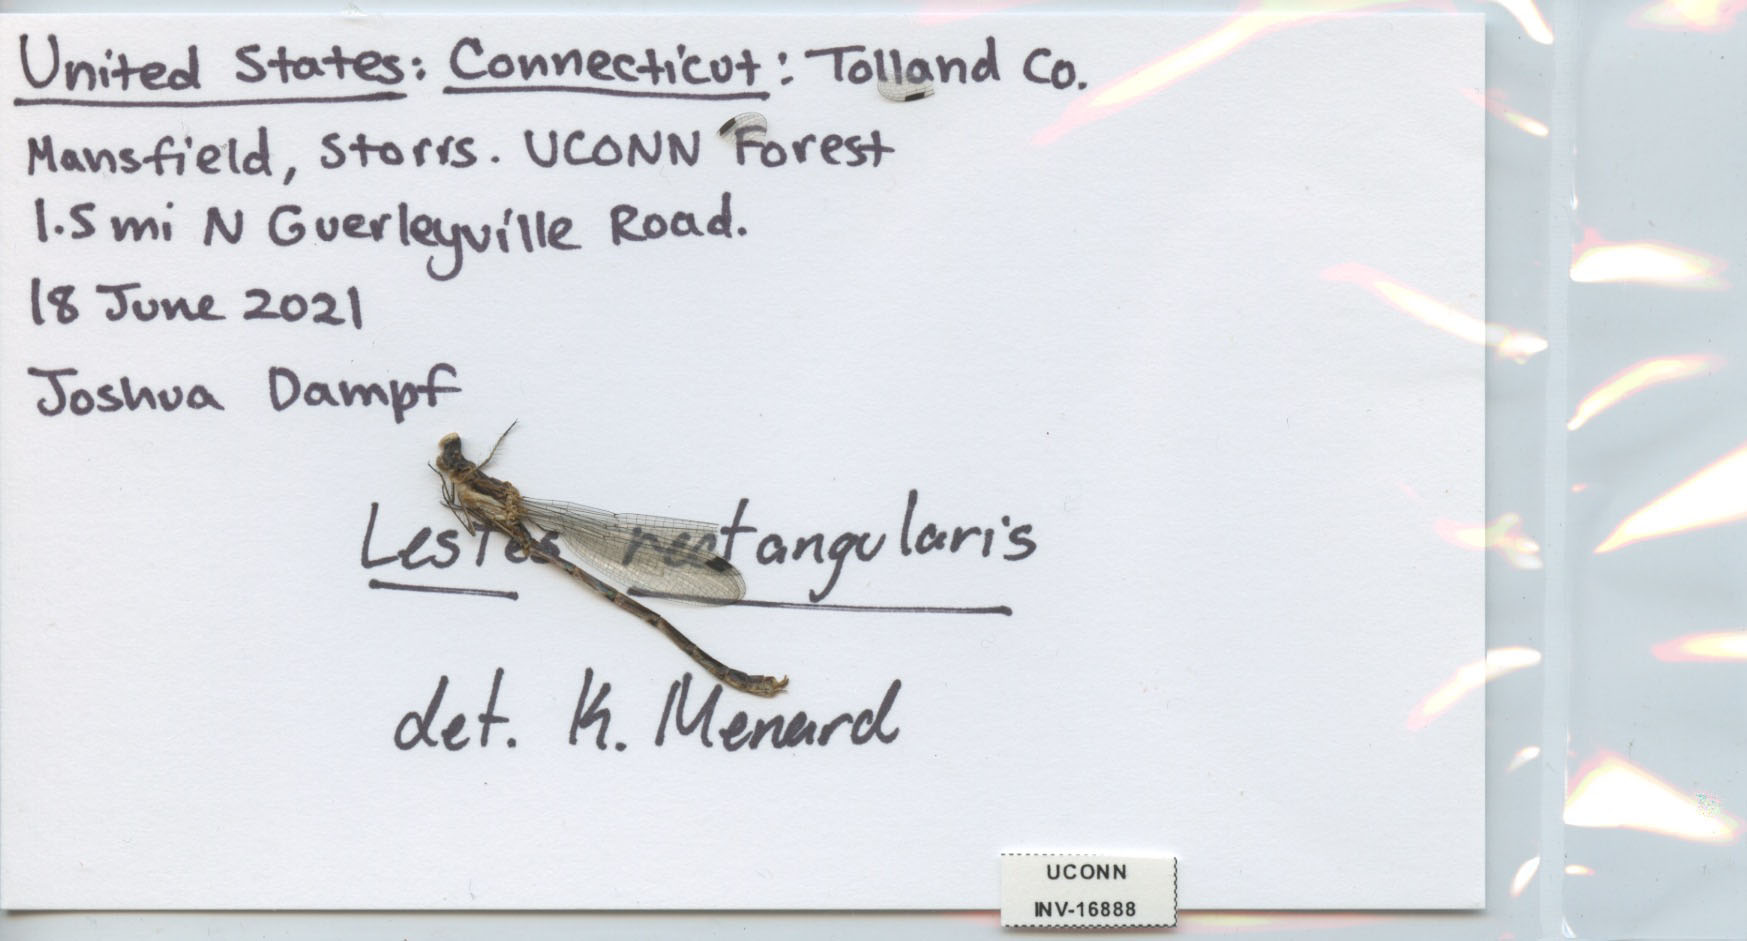 United States: Connecticut: Tolland Co.
Mansfield, Storrs. UCONN Forest
1.5 mi N Guerleyville Road.
18 June 2021
Joshua Dampf
Lestes rectangularis
det. K. Menard
UCONN
INV-16888